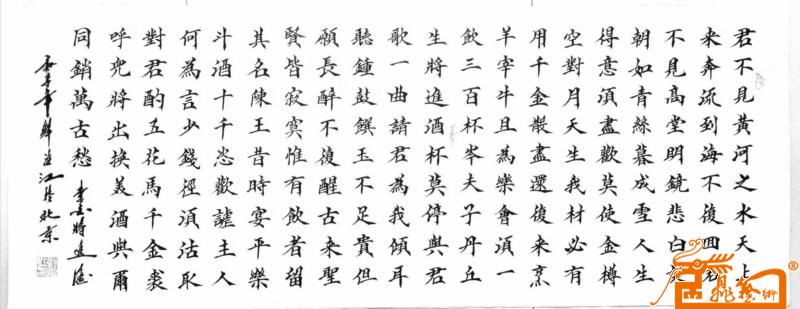 君不見黃河之水天上
来奔流到海不復回君
不見高堂明鏡悲白髮
朝如青絲暮成雪人生
得意須盡歡莫使金樽
空對月天生我材必有
用千金散盡還復来烹
羊宰牛且為樂會須一
飲三百杯岑夫子丹丘
生將進酒杯莫停與君
歌一曲請君為我傾耳
聽鍾鼓饌玉不足貴但
願長醉不復醒古来聖
賢皆寂寞惟有飲者留
其名陳王昔時宴平樂
斗酒十千恣歡謔主人
何為言少錢徑須沽取
對君酌五花馬千金裘
呼兒將出換美酒與爾
同銷萬古愁 李白將進酒
年 江 北京
藝術®